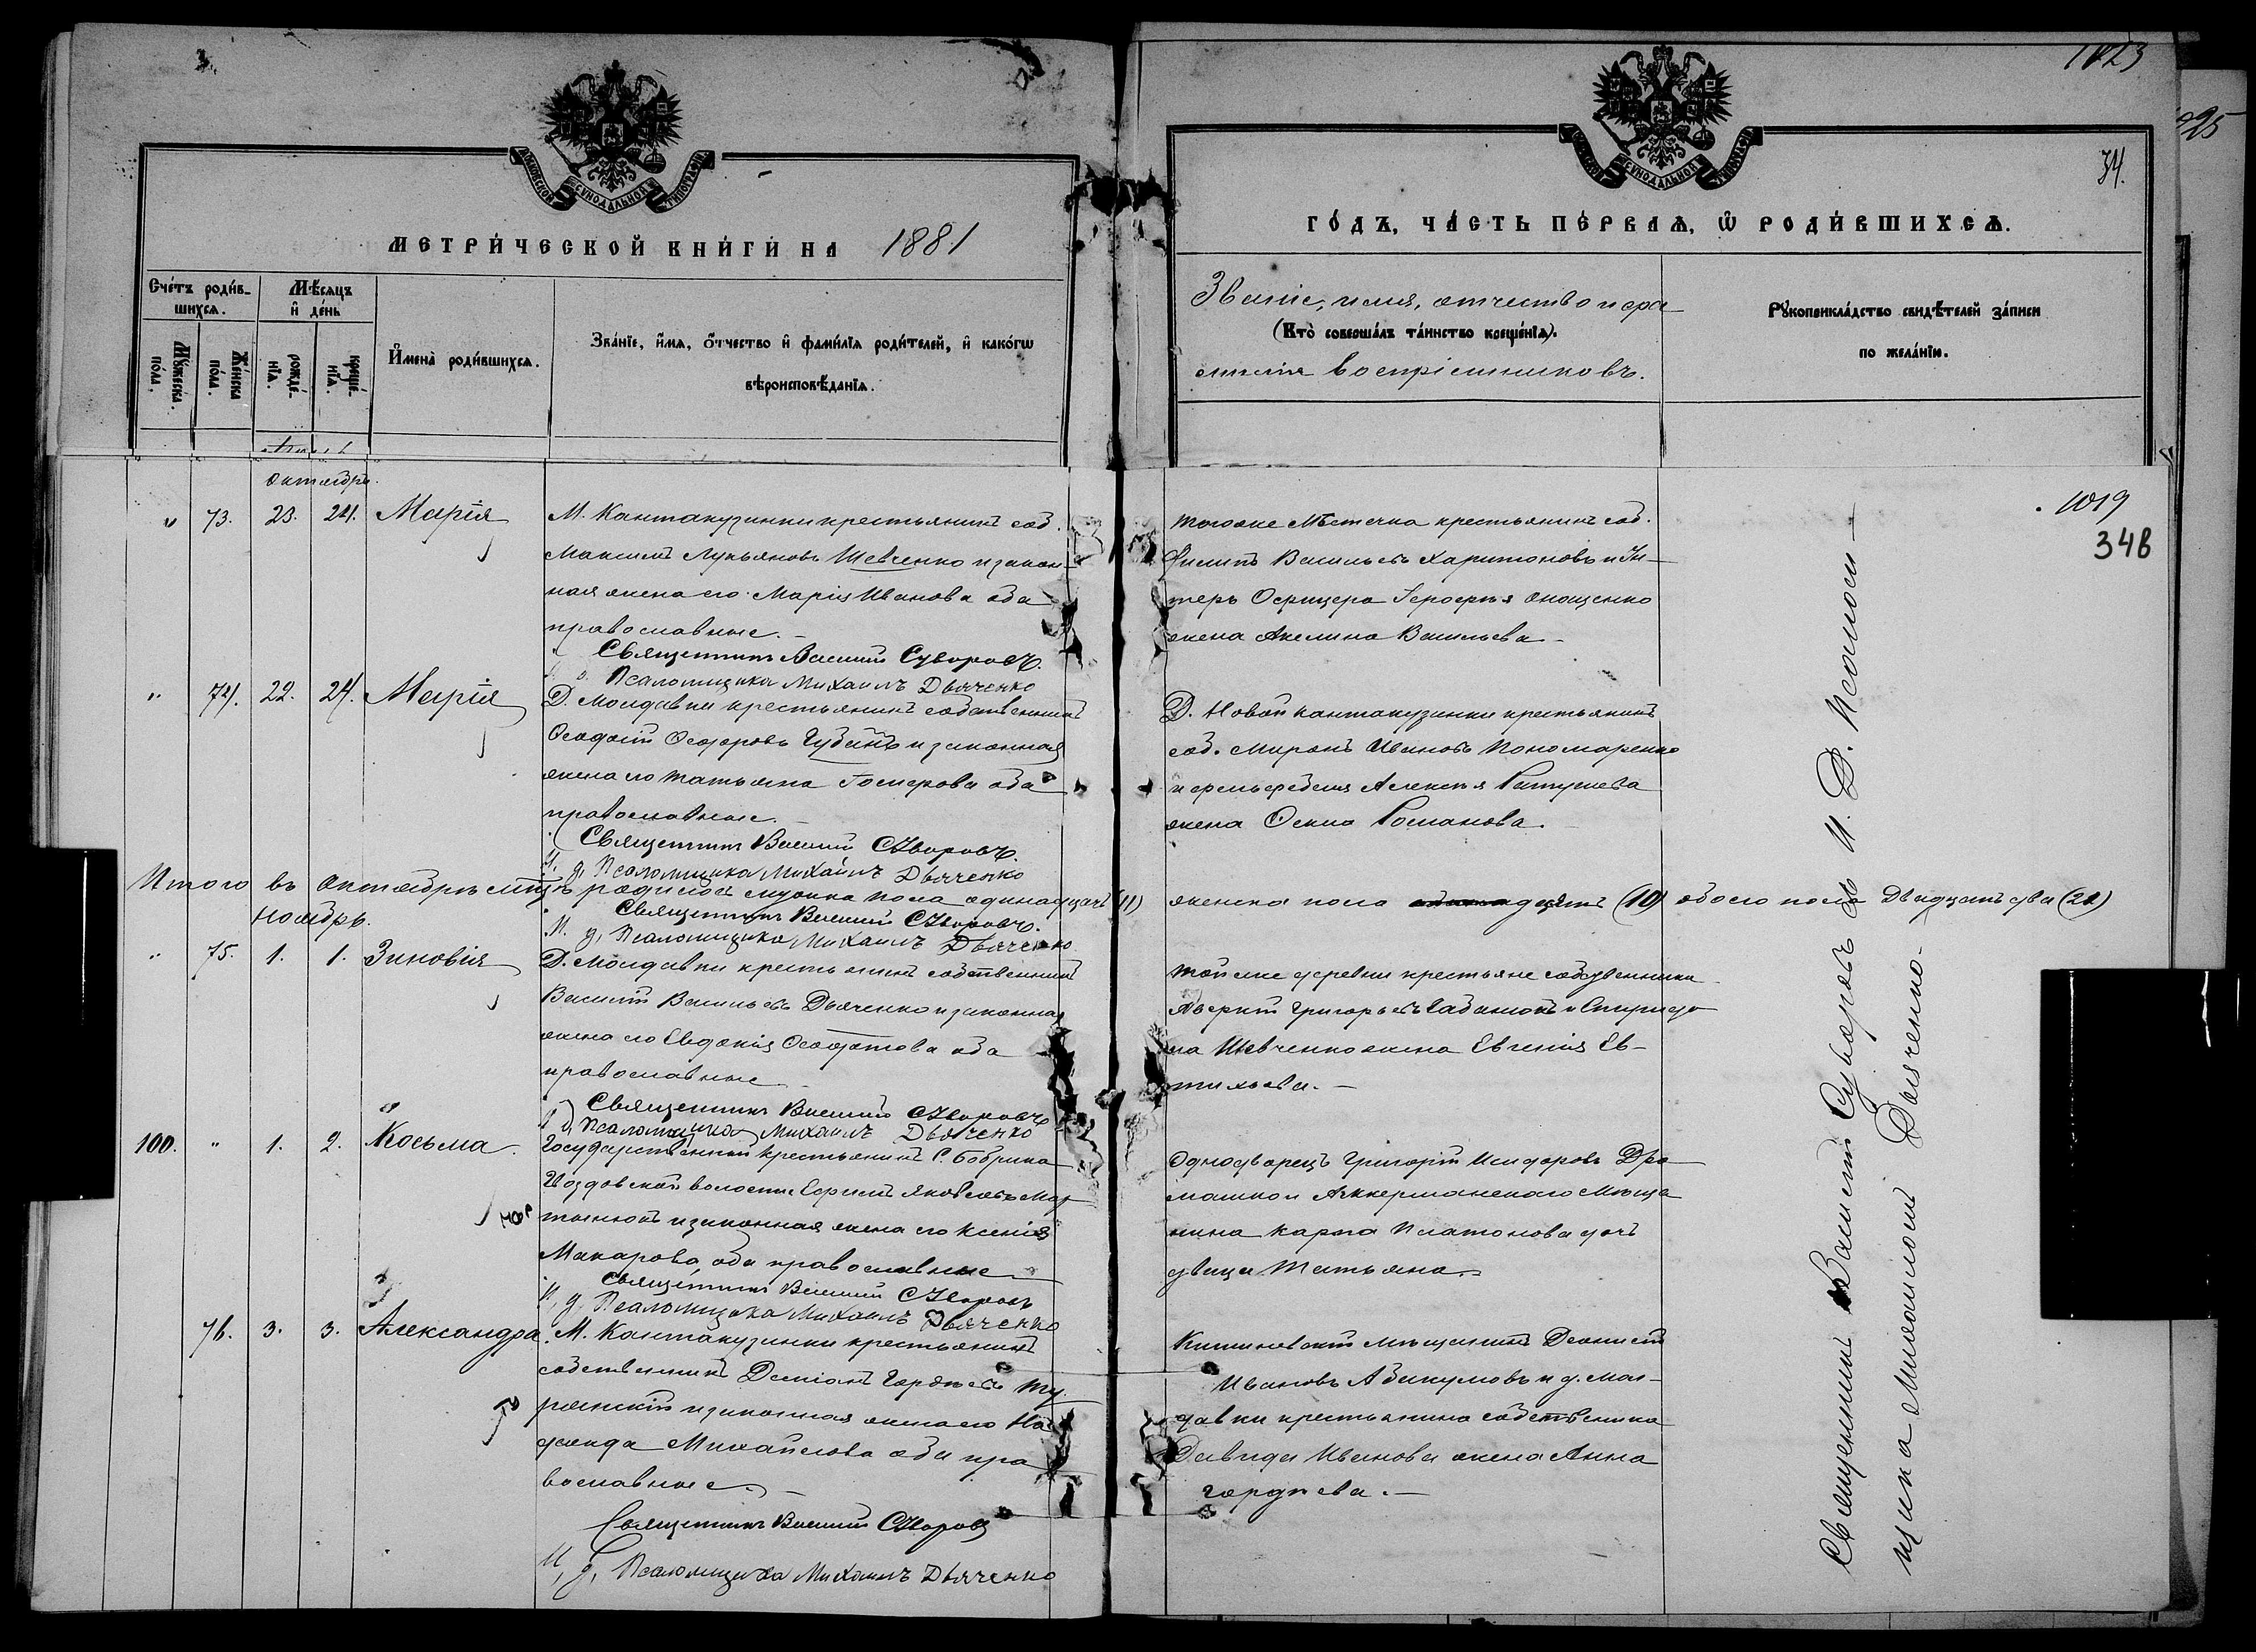 1823
95
34.
МОСКОВСКОЙ СѴНОДАЛЬНОЙ ТИПОГРАФІИ
МОСКОВСКОЙ СѴНОДАЛЬНОЙ ТИПОГРАФІИ
МЕТРИ́ЧЕСКОЙ КНИ́ГИ НА 1881
ГО́ДЪ, ЧА́СТЬ ПЕ́РВАѦ, Ѡ҆ РОДИ́ВШИХСѦ.
Сче́тъ роди́в-
шихсѧ.
Мѣ́сѧцъ
и҆ де́нь
Мꙋ́жеска.
по́ла.
Же́нска
по́ла.
рожде́-
нїѧ.
креще́-
нїѧ.
И҆мена̀ роди́вшихсѧ.
Зва́нїе, и҆́мѧ, ѻ҆́тчество и҆ фами́лїѧ роди́телей, и҆ како́гѡ
вѣроисповѣ́данїѧ.
Званіе, имя, отчество и фа
(Кто̀ соверша́лъ та́инство креще́нїѧ).
милія воспріемниковъ.
Рꙋкоприкла́дство свидѣ́телей за́писи
по жела́нїю.
Октябрь.
" 73. 23. 24. Марія
М. Кантакузинки крестьянинъ соб.
Максимъ Лукьяновъ Шевченко и закон-
ная жена его Марія Иванова оба
православные.
Священникъ Василій Суворовъ.
И. д. Псаломщика Михаилъ Дьяченко
тогоже Мѣстечка крестьянинъ соб.
Филипъ Васильевъ Харитоновъ и Ун-
теръ Офицера Онощенко
жена Акелина Васильева
1019
348
" 74. 22. 24. Марія
Д. Молдавки крестьянинъ собственникъ
Феодосій Федоровъ Губинъ и законная
жена его Татьяна оба
православные.
Священникъ Василій Суворовъ.
И. д. Псаломщика Михаилъ Дьяченко
Д. Новой кантакузинки крестьянинъ
соб. Миронъ Ивановъ Пономаренко
и Алексѣя
жена Романова.
Итого въ Октябрѣ мцѣ родилось мужска пола одинадцать (11)
женска пола десять (10) обоего пола Двадцать два (21)
Священникъ Василій Суворовъ.
И. д. Псаломщика Михаилъ Дьяченко
Ноябрь.
" 75. 1. 1. Зиновія
Д. Молдавки крестьянинъ собственникъ
Василій Васильевъ Дьяченко и законная
жена его Евдокія оба
православные
Священникъ Василій Суворовъ
И. д. Псаломщика Михаилъ Дьяченко
той же деревни крестьяне собственники
Аверкій Григорьевъ и Спиридо
на Шевченко жена Евгенія Ев-
тихьева.
100. " 1. 2. Косьма.
Государственный крестьянинъ С. Бобрика
Гвоздовской волости Ефимъ Яковлевъ Мар
тынюкъ и законная жена его Ксенія
Макарова, оба православные
Священникъ Василій Суворовъ
И, д, Псаломщика Михаилъ Дьяченко
Однодворецъ Григорій Исидоровъ Дро
машко и Аккерманскаго Мѣща
нина Карпа Платонова дочь
двица Татьяна.
76. 3. 3. Александра.
М. Кантакузинки крестьянинъ
собственникъ Деміанъ Гордѣевъ Ту
рянскій и законная жена его На
дежда Михайлова оба пра
вославные.
Священникъ Василій Суворовъ
И, д, Псаломщика Михаилъ Дьяченко
Кишиневскій мѣщанинъ Деонисій
Ивановъ и д. Мол-
давки крестьянина собственика
Давида Иванова жена Анна
гордѣева.
Священникъ Василій Суворовъ И. Д. Псалом-
щика Михаилъ Дьяченко-